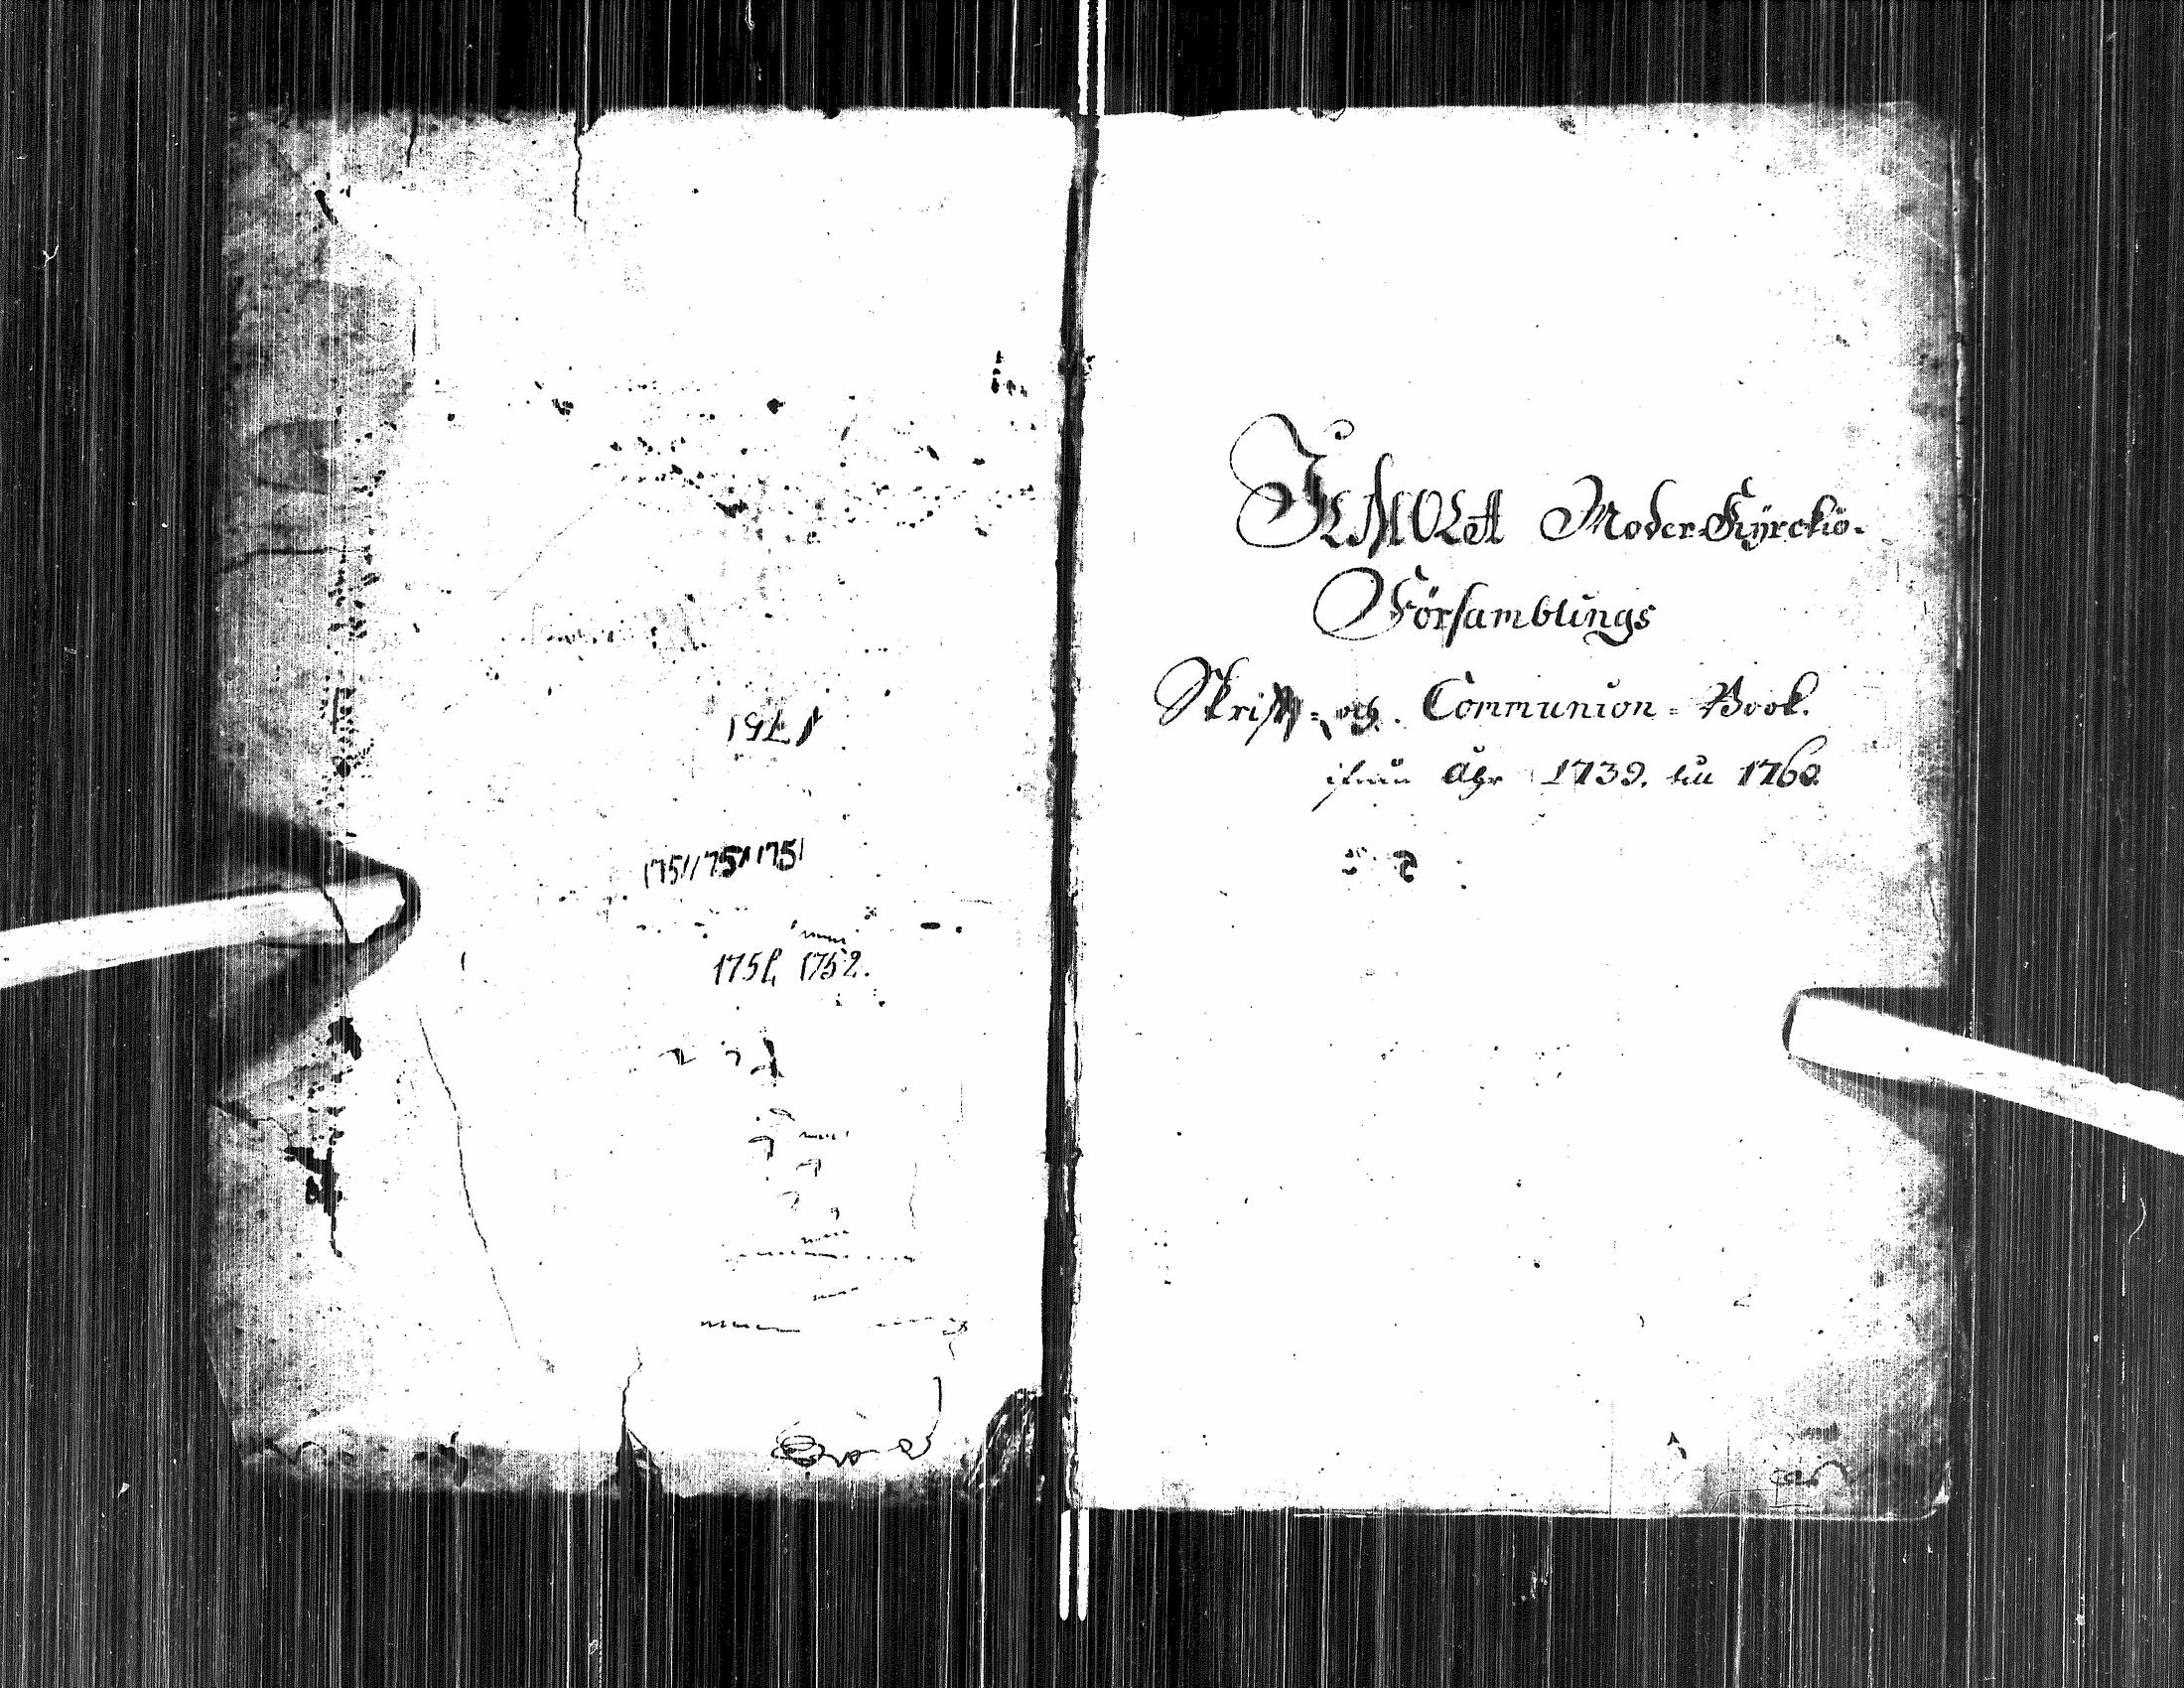 1751
1751 1751 1751
1751, 1752.
ILMOLA Moder-Kÿrckio-
Församblings
Skrifft- och Communion-Book.
ifrån åhr 1739. till 1760.